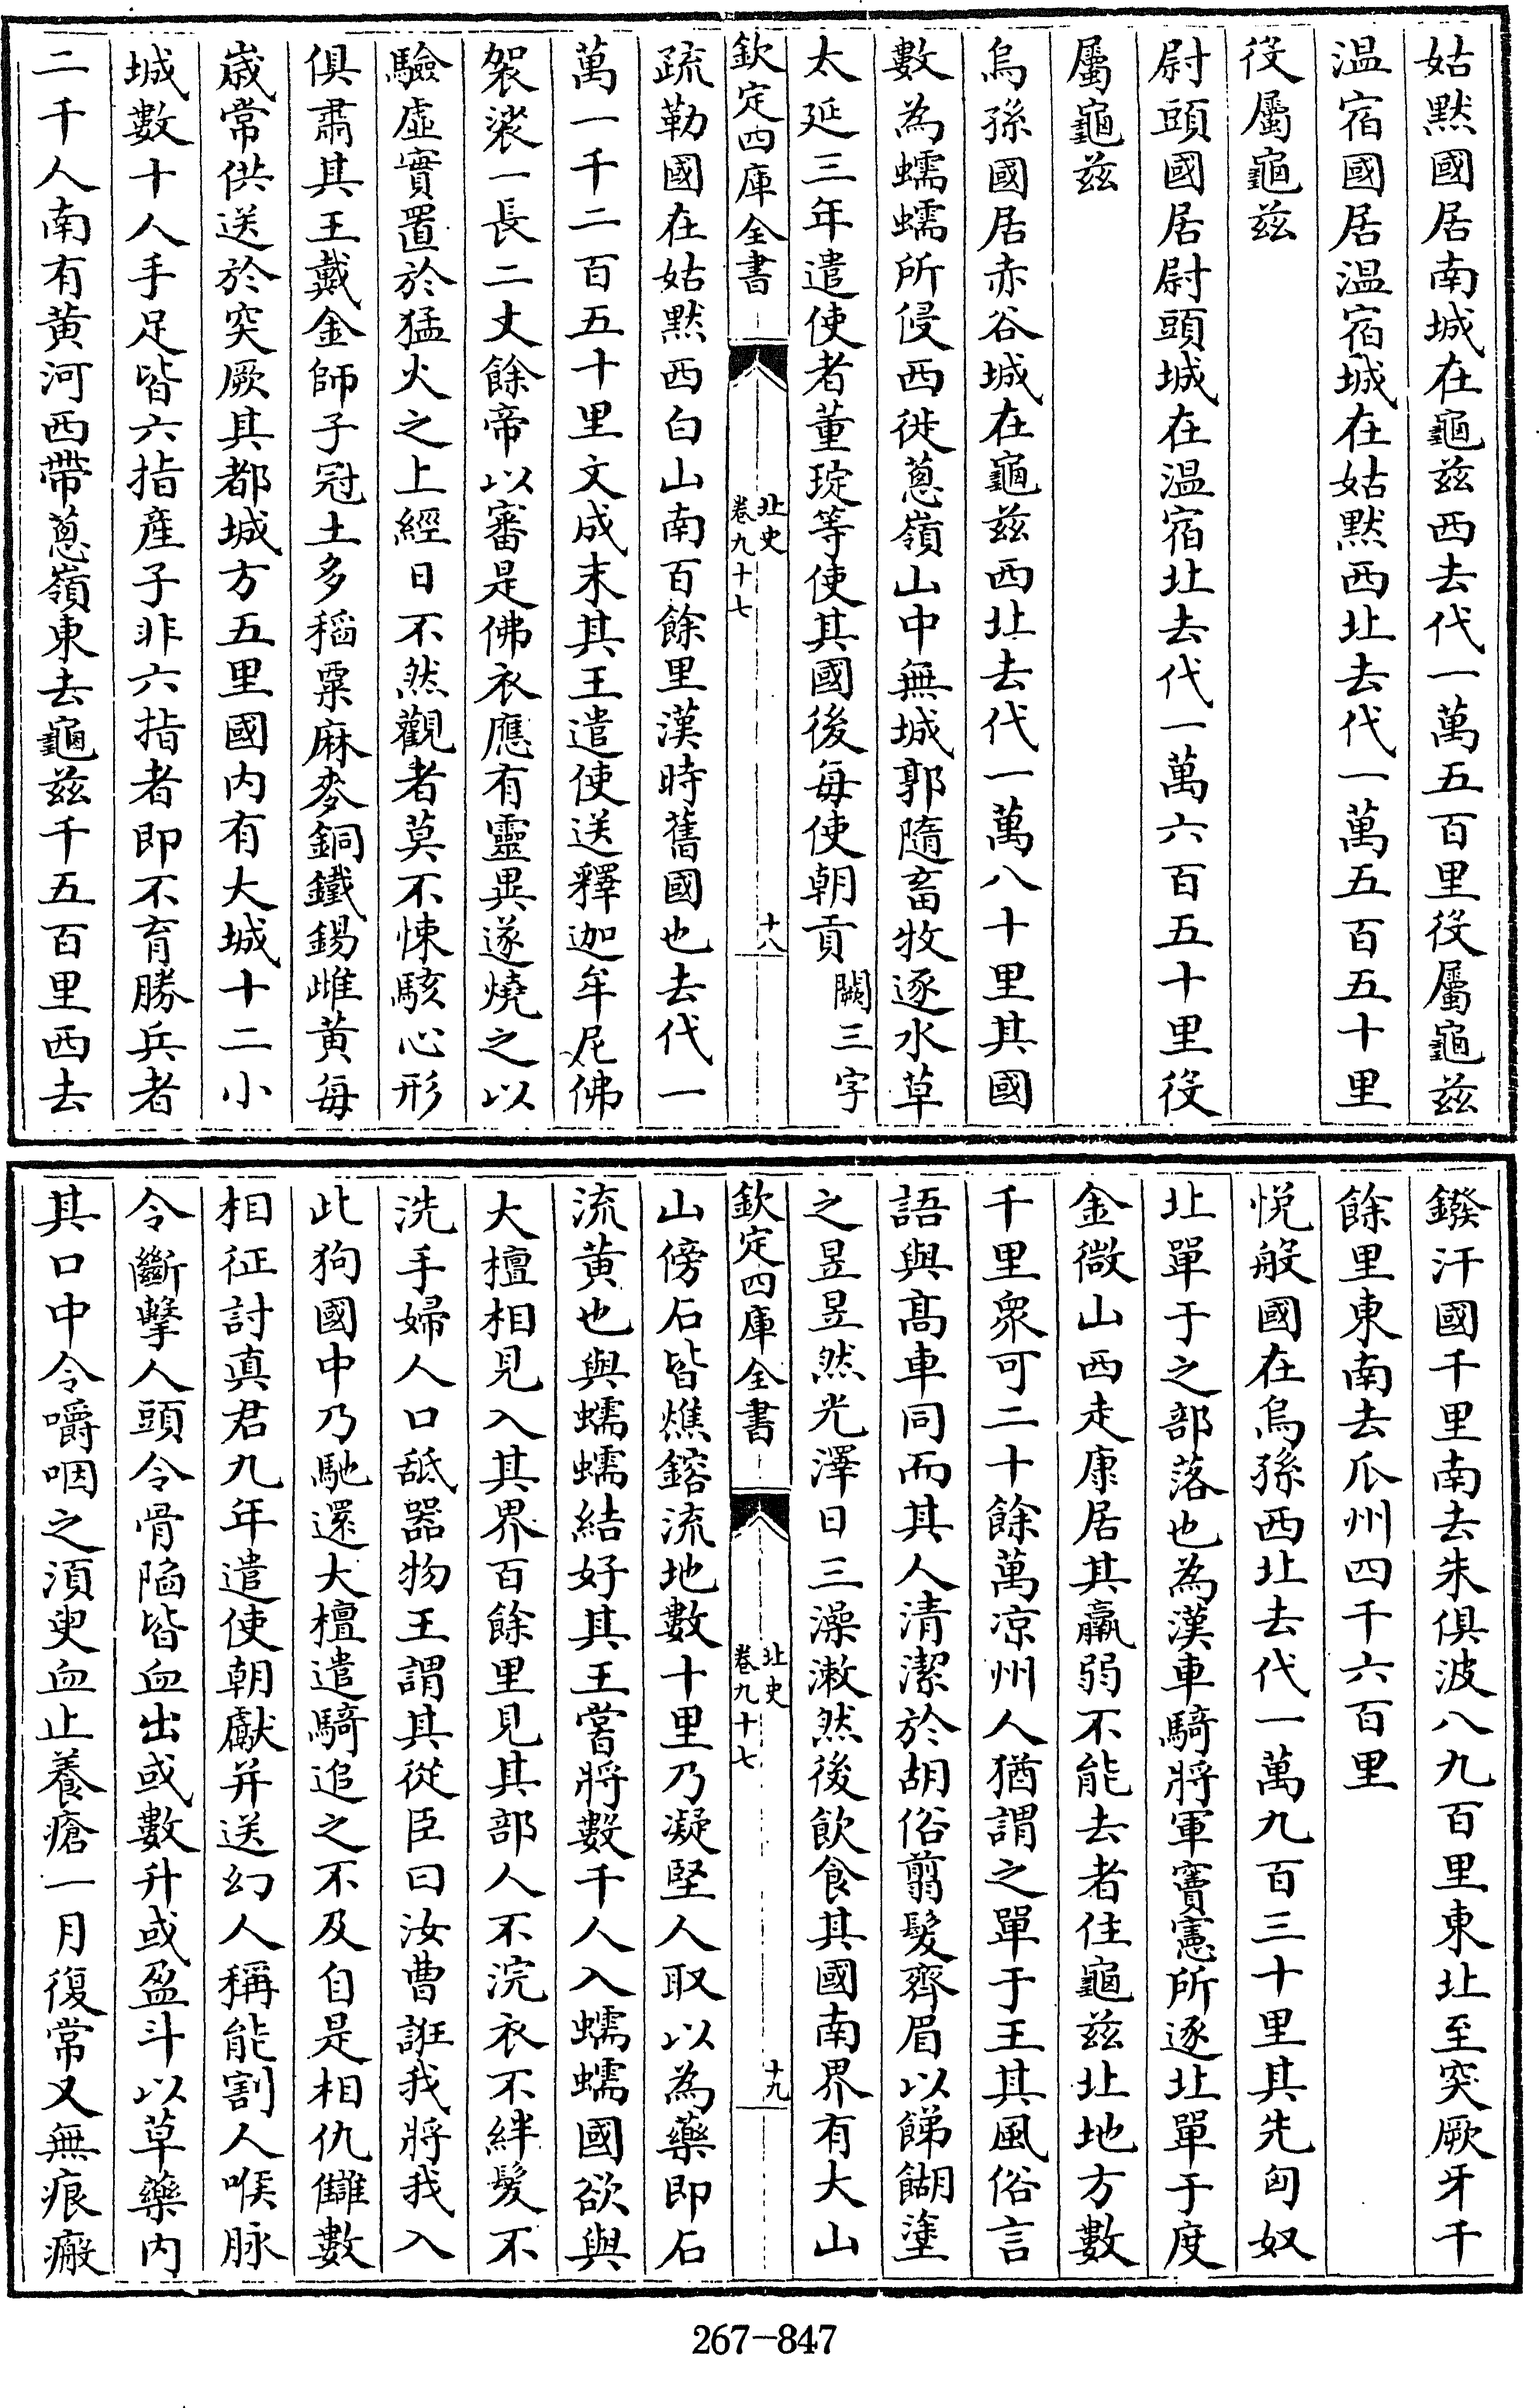 姑黙國居南城在龜兹西去代一萬五百里役屬龜兹
温宿國居温宿城在姑黙西北去代一萬五百五十里
役屬龜兹
尉頭國居尉頭城在温宿北去代一萬六百五十里役
屬龜兹
烏孫國居赤谷城在龜兹西北去代一萬八十里其國
數為蠕蠕所侵西徙蔥嶺山中無城郭隨畜牧逐水草
太延三年遣使者董琁等使其國後每使朝貢闕三字
欽定四庫全書
北史
卷九十七
十八
疏勒國在姑黙西白山南百餘里漢時舊國也去代一
萬一千二百五十里文成末其王遣使送釋迦牟尼佛
袈裟一長二丈餘帝以審是佛衣應有靈異遂燒之以
驗虚實置於猛火之上經日不然觀者莫不悚駭心形
俱肅其王戴金師子冠土多稻粟麻麥銅鐵錫雌黄每
歳常供送於突厥其都城方五里國内有大城十二小
城數十人手足皆六指産子非六指者即不育勝兵者
二千人南有黄河西帶蔥嶺東去龜兹千五百里西去
鏺汗國千里南去朱俱波八九百里東北至突厥牙千
餘里東南去瓜州四千六百里
悦般國在烏孫西北去代一萬九百三十里其先匈奴
北單于之部落也為漢車騎將軍竇憲所逐北單于度
金微山西走康居其羸弱不能去者住龜兹北地方數
千里衆可二十餘萬凉州人猶謂之單于王其風俗言
語與髙車同而其人清潔於胡俗翦髮齊眉以餳餬塗
之昱昱然光澤日三澡漱然後飲食其國南界有大山
欽定四庫全書
北史
卷九十七
十九
山傍石皆燋鎔流地數十里乃凝堅人取以為藥即石
流黄也與蠕蠕結好其王嘗將數千人入蠕蠕國欲與
大檀相見入其界百餘里見其部人不浣衣不絆髮不
洗手婦人口舐器物王謂其從臣曰汝曹誑我將我入
此狗國中乃馳還大檀遣騎追之不及自是相仇讎數
相征討真君九年遣使朝獻并送幻人稱能割人喉脉
令斷擊人頭令骨陷皆血出或數升或盈斗以草藥内
其口中令嚼咽之須臾血止養瘡一月復常又無痕瘢
267-847